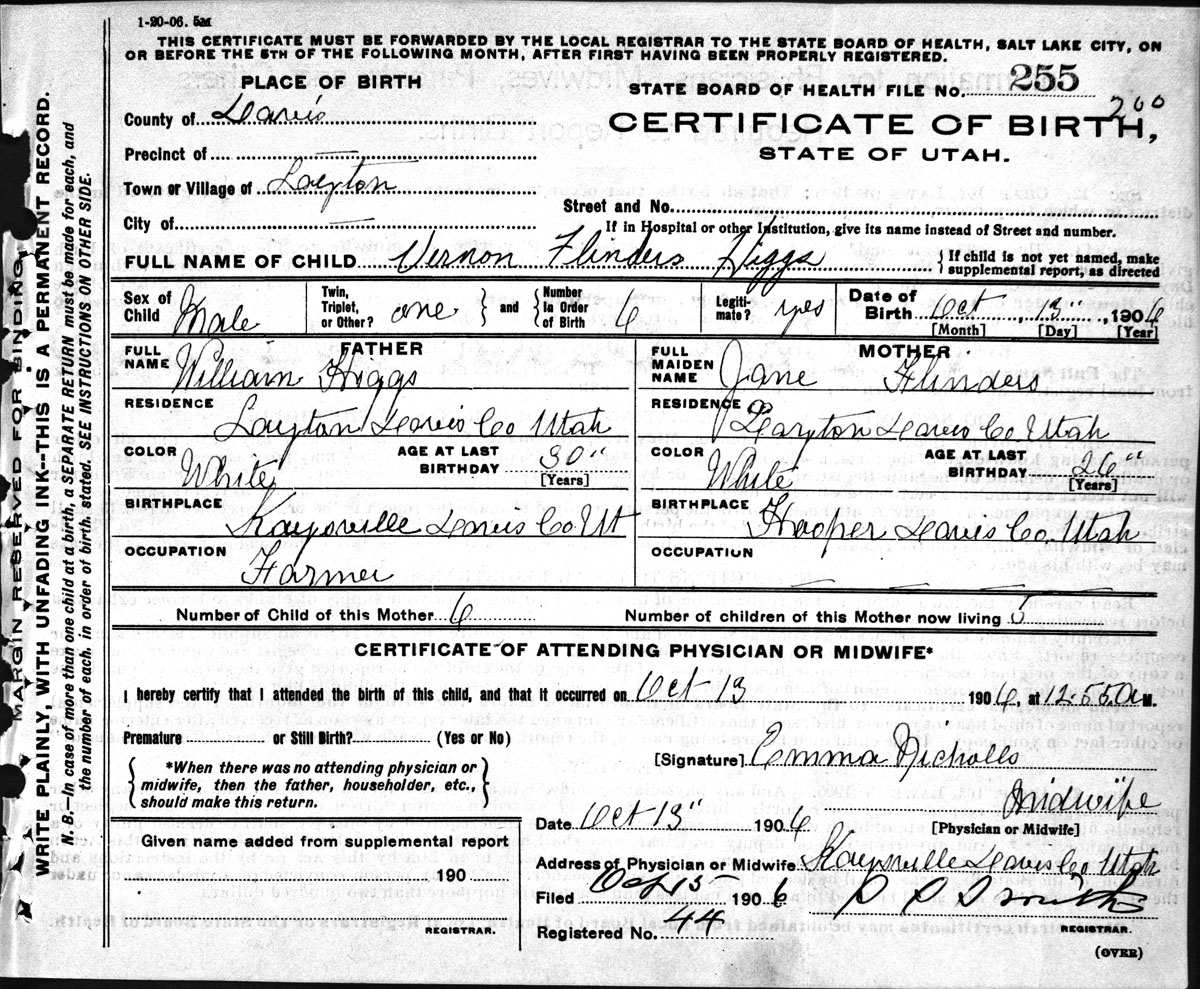 1-20-06. 5M
THIS CERTIFICATE MUST BE FORWARDED BY THE LOCAL REGISTRAR TO THE STATE BOARD OF HEALTH, SALT LAKE CITY, ON
OR BEFORE THE 5TH OF THE FOLLOWING MONTH, AFTER FIRST HAVING BEEN PROPERLY REGISTERED.
MARGIN RESERVED FOR BINDING.
WRITE PLAINLY, WITH UNFADING INK--THIS IS A PERMANENT RECORD.
N.B.--In case of more than one child at a birth, a SEPARATE RETURN must be made for each, and
the number of each, in order of birth, stated. SEE INSTRUCTIONS ON OTHER SIDE.
PLACE OF BIRTH
STATE BOARD OF HEALTH FILE No. 255
200
County of Davis
CERTIFICATE OF BIRTH,
Precinct of
STATE OF UTAH.
Town or Village of Layton
Street and No.
City of
If in Hospital or other Institution, give its name instead of Street and number.
FULL NAME OF CHILD Vernon Flinders Higgs { If child is not yet named, make
supplemental report, as directed
Sex of Child Male
Twin, Triplet, or Other? one } and { Number In Order of Birth 6
Legiti-mate? yes
Date of Birth Oct 13", 1906
[Month] [Day] [Year]
FATHER
FULL NAME William Higgs
RESIDENCE
Layton Davis Co Utah
COLOR White AGE AT LAST BIRTHDAY 30"
[Years]
BIRTHPLACE
Kaysville Davis Co. Ut
OCCUPATION
Farmer
MOTHER
FULL MAIDEN NAME Jane Flinders
RESIDENCE
Layton Davis Co Utah
COLOR White AGE AT LAST BIRTHDAY 26"
[Years]
BIRTHPLACE
Hooper Davis Co. Utah
OCCUPATION
Number of Child of this Mother 6
Number of children of this Mother now living 5
CERTIFICATE OF ATTENDING PHYSICIAN OR MIDWIFE*
I hereby certify that I attended the birth of this child, and that it occurred on Oct 13 1906, at 12.55 A M.
Premature or Still Birth? (Yes or No)
{ *When there was no attending physician or
midwife, then the father, householder, etc.,
should make this return. }
[Signature] Emma Nicholls
Midwife
Date Oct 13" 1906 [Physician or Midwife]
Given name added from supplemental report
190
REGISTRAR.
Address of Physician or Midwife Kaysville Davis Co, Utah
Filed Oct 15 1906
Registered No. 44
REGISTRAR.
(OVER)